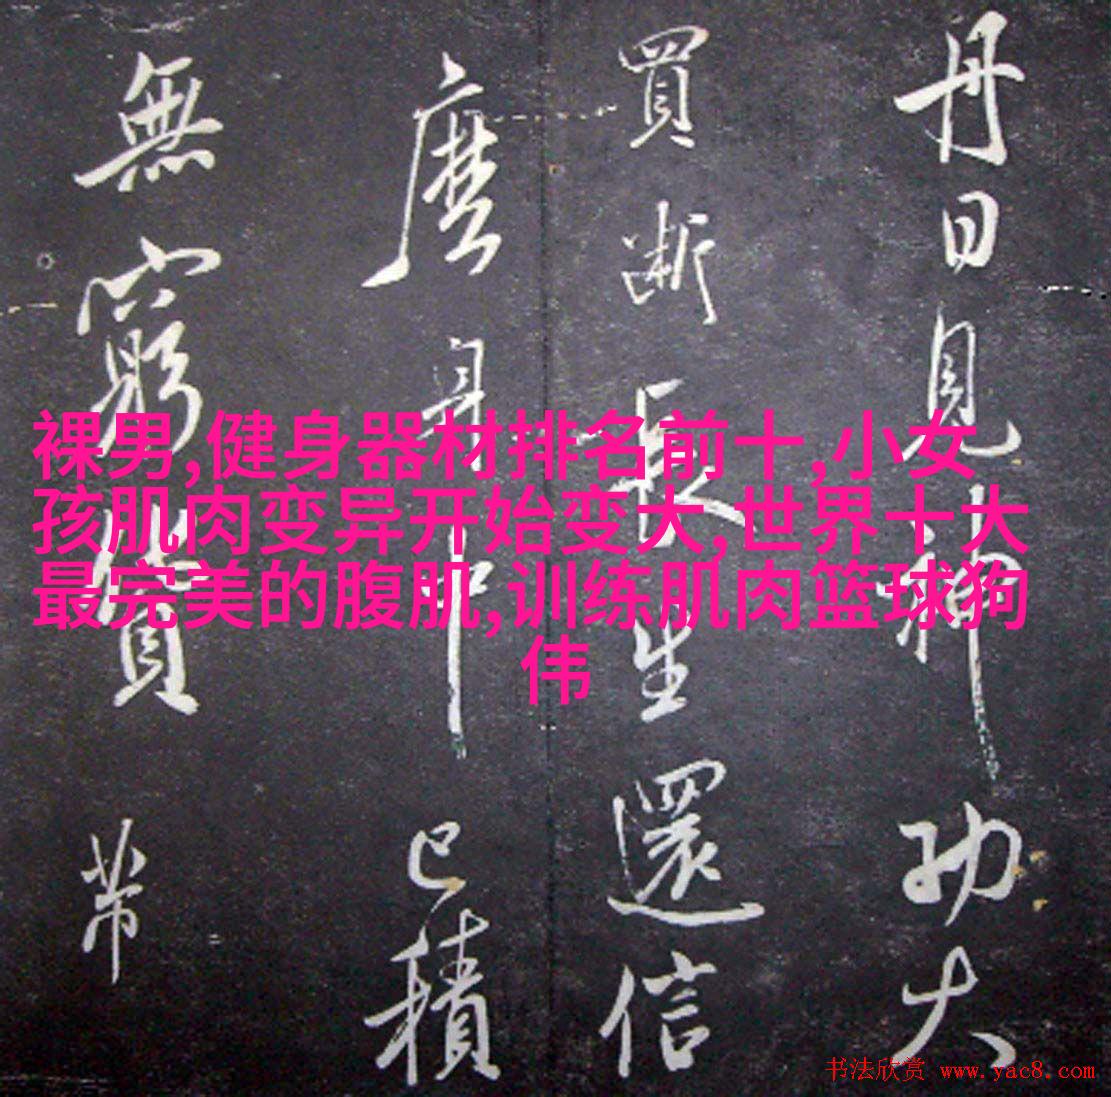 丹日見神功大
買斷長生還信
麽身中已積
無窮寶帶
裸男,健身器材排名前十,小女
孩肌肉变异开始变大,世界十大
最完美的腹肌,训练肌肉篮球狗
伟
书法欣赏 www.yac8.com